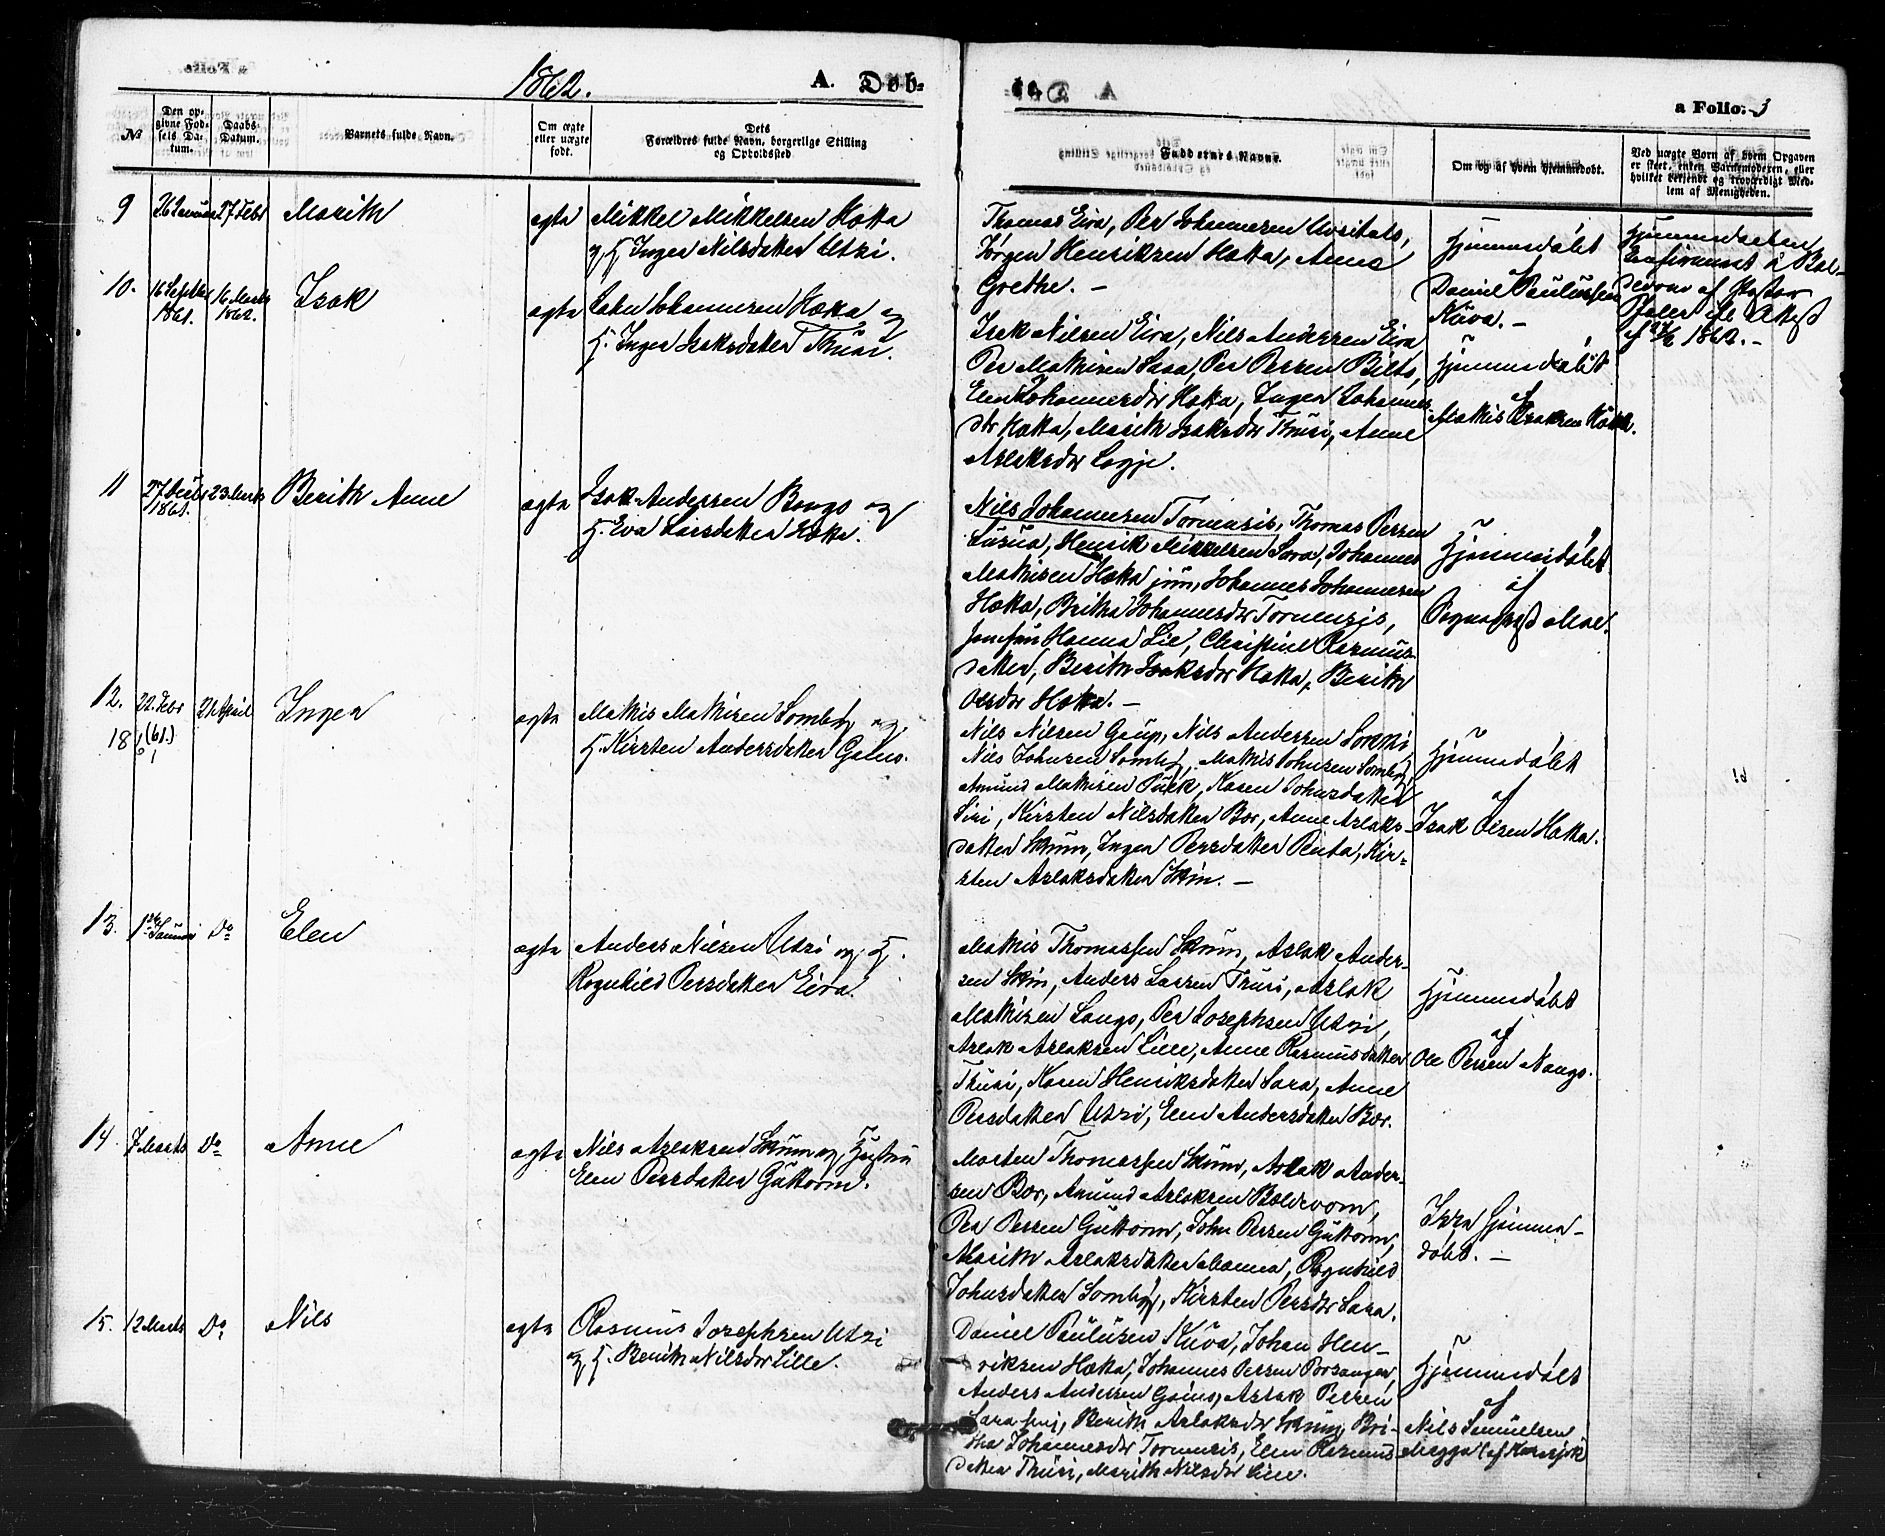 1862.
A. Døb-
a Folio. 3
№
Den op-
givne Fød-
sels Da-
tum.
Daabs-
Datum.
Barnets fulde Navn.
Om ægte
eller uægte
født.
Dets
Forældres fulde Navn, borgerlige Stilling
og Opholdssted
Faddernes Navne.
Om og af hvem hjemmedøbt.
Ved uægte Børn af hvem Opgaven
er skeet, enten Barnemoderen, eller
hvilket bekjendt og troværdigt Med-
lem af Menigheden.
9
26 Januar
27 Febr
Marith
ægte
Mikkel Mikkelsen Hætta
og H. Inger Nilsdatter Utsi.
Thomas Eira, Per Johannesen Uvsitals,
Jørgen Henriksen Hætta, Anne
Grethe. —
Hjemmedøbt
af
Daniel Paulussen
Kuva. —
Hjemmedaaben
af Pastor
1862. —
10.
16 Septbr
1861.
16 Marts
1862.
Isak
ægte
John Johannesen Hætta og
H. Inger Isaksdatter Thuri.
Isak Nilsen Eira, Nils Anderssen Eira
Per Mathisen Sara, Per Persen Bilto,
Elen Johannesdr Hætta, Inger Johannes-
dtr Hætta, Marith Isaksdtr Thuri, Anne
Aslaksdr Logje.
Hjemmedøbt
af
Mathis Isaksen Hætta.
11
27
1861.
23 Marts
Berith Anne
ægte
Isak Andersen Bongo og
H. Eva Larsdatter Hætta.
Nils Johannesen Tornensis, Thomas Persen
Henrik Mikkelsen Sara, Johannes
Mathisen Hætta jun, Johannes Johannesen
Hætta, Britha Johannesdr Tornensis,
Hanna Lie, Christine Rasmus-
datter, Berith Isaksdr Hætta, Berith
Olesdr Hætta. —
Hjemmedøbt
af
Sognepræst Moe.
12.
22 Febr
18
(61.)
21 April
Inger
ægte
Mathis Mathisen Somby og
H. Kirsten Andersdatter Gaino.
Nils Nilsen Gaup, Nils Andersen Sokki,
Nils Johnsen Somby, Mathis Johnsen Somby,
Amund Mathisen Pulk, Karen Johnsdatter
Siri, Kirsten Nilsdatter Bær, Anne Aslaks-
datter Skum, Inger Persdatter Penta, Kir-
sten Aslaksdatter Skin. —
Hjemmedøbt
af
Isak Olsen Hætta.
13.
1ste Januar
Do
Elen
ægte
Anders Nilsen Utsi og H.
Ragnhild Persdatter Eira.
Mathis Thomassen Skum, Aslak Ander-
sen Skin, Anders Larsen Thuri, Aslak
Mathisen Sango, Per Josephsen Utsi,
Aslak Aslaksen Lille, Anne Rasmusdatter
Thuri, Karen Henriksdatter Sara, Anne
Persdatter Utsi, Elen Andersdatter Bær.
Hjemmedøbt
af
Ole Persen Nango.
14.
7 Marts
Do
Anne
ægte
Nils Aslaksen Skum og Hustru
Elen Persdatter Guttorm.
Morten Thomassen Skum, Aslak Ander-
sen Bær, Amund Aslaksen Bældevom,
Per Persen Guttorm, John Persen Guttorm,
Marith Aslaksdatter Banna, Ragnhild
Johnsdatter Somby, Kirsten Persdr Sara.
Ikke hjemme-
døbt. —
15.
12 Marts
Do
Nils
ægte
Rasmus Josephsen Utsi
og H. Berith Nilsdr Lille.
Daniel Paulusen Kuva, Johan Hen-
riksen Hætta, Johannes Persen Porsanger,
Anders Andersen Gaino, Aslak Persen
Sara senj, Berith Aslaksdr Skum, Bri-
tha Johannesdr Tornensis, Elen Rasmus-
datter Thuri, Marith Nilsdr Lille.
Hjemmedøbt
af
Nils Samuelsen
Magga (af Karasjok